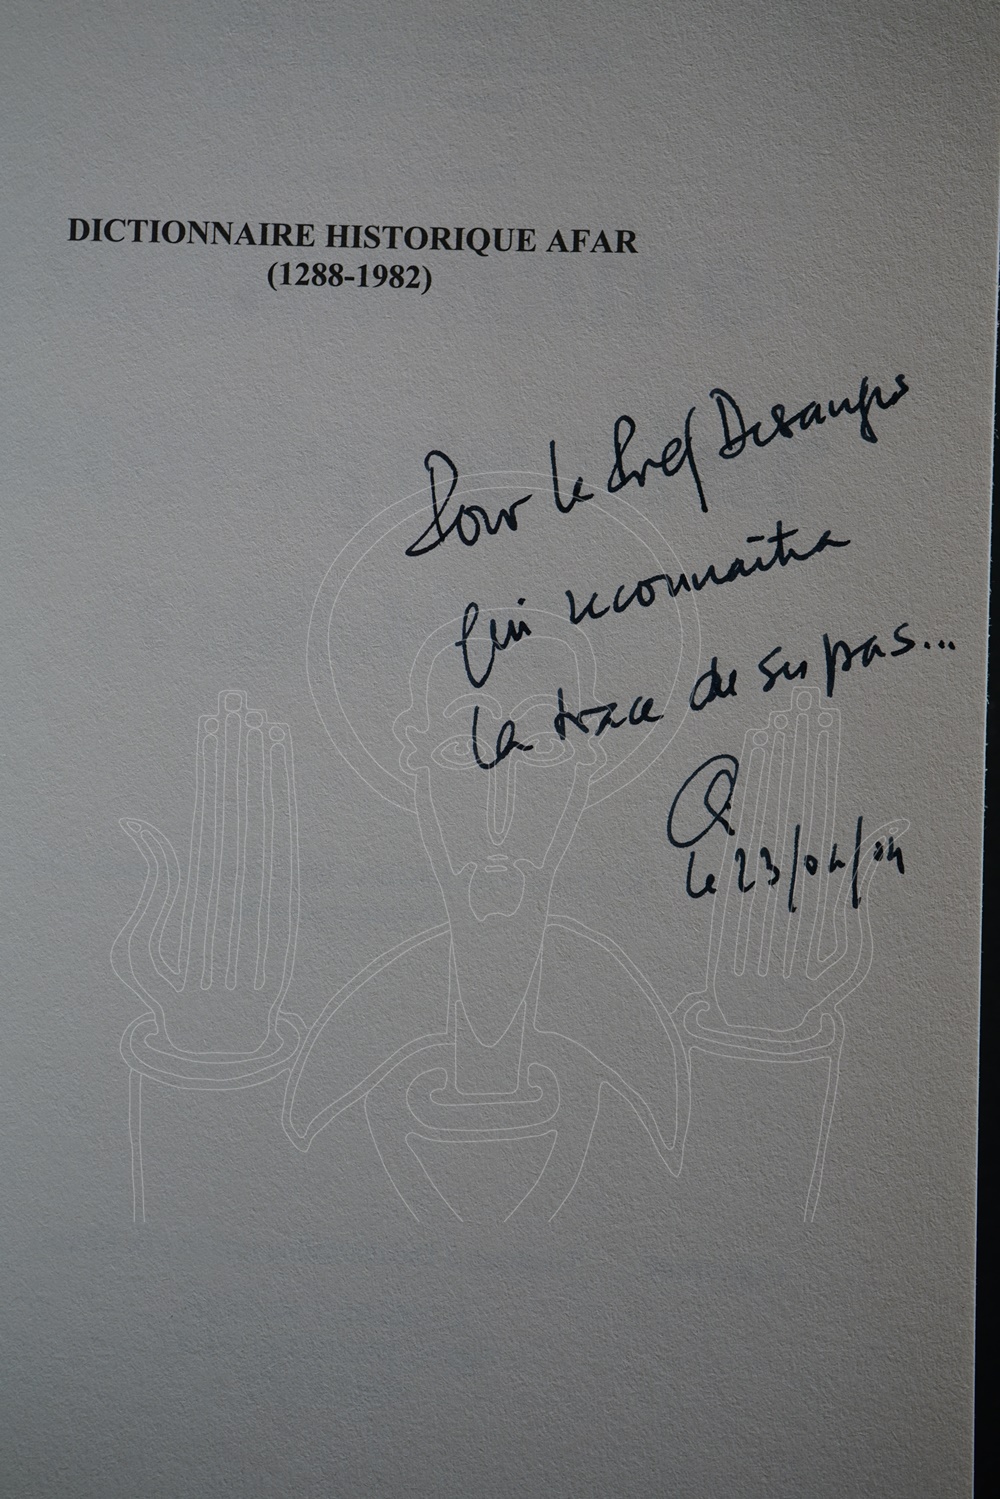 DICTIONNAIRE HISTORIQUE AFAR
(1288-1982)
Pour le Prof Desanges
qui reconnaîtra
la trace de ses pas...
le 23/04/04